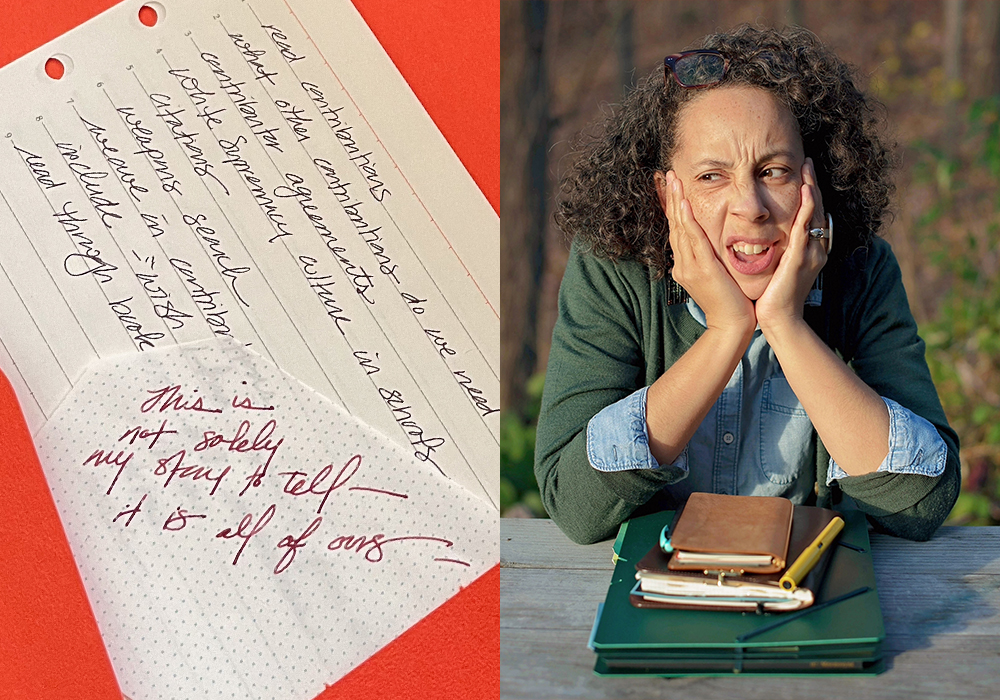 read contributions
what other contributions do we need
contributor agreements
white supremacy culture in schools
citations
weapons search
weave in
include "wish
read through book
This is
not solely
my story to tell—
it is all of ours—